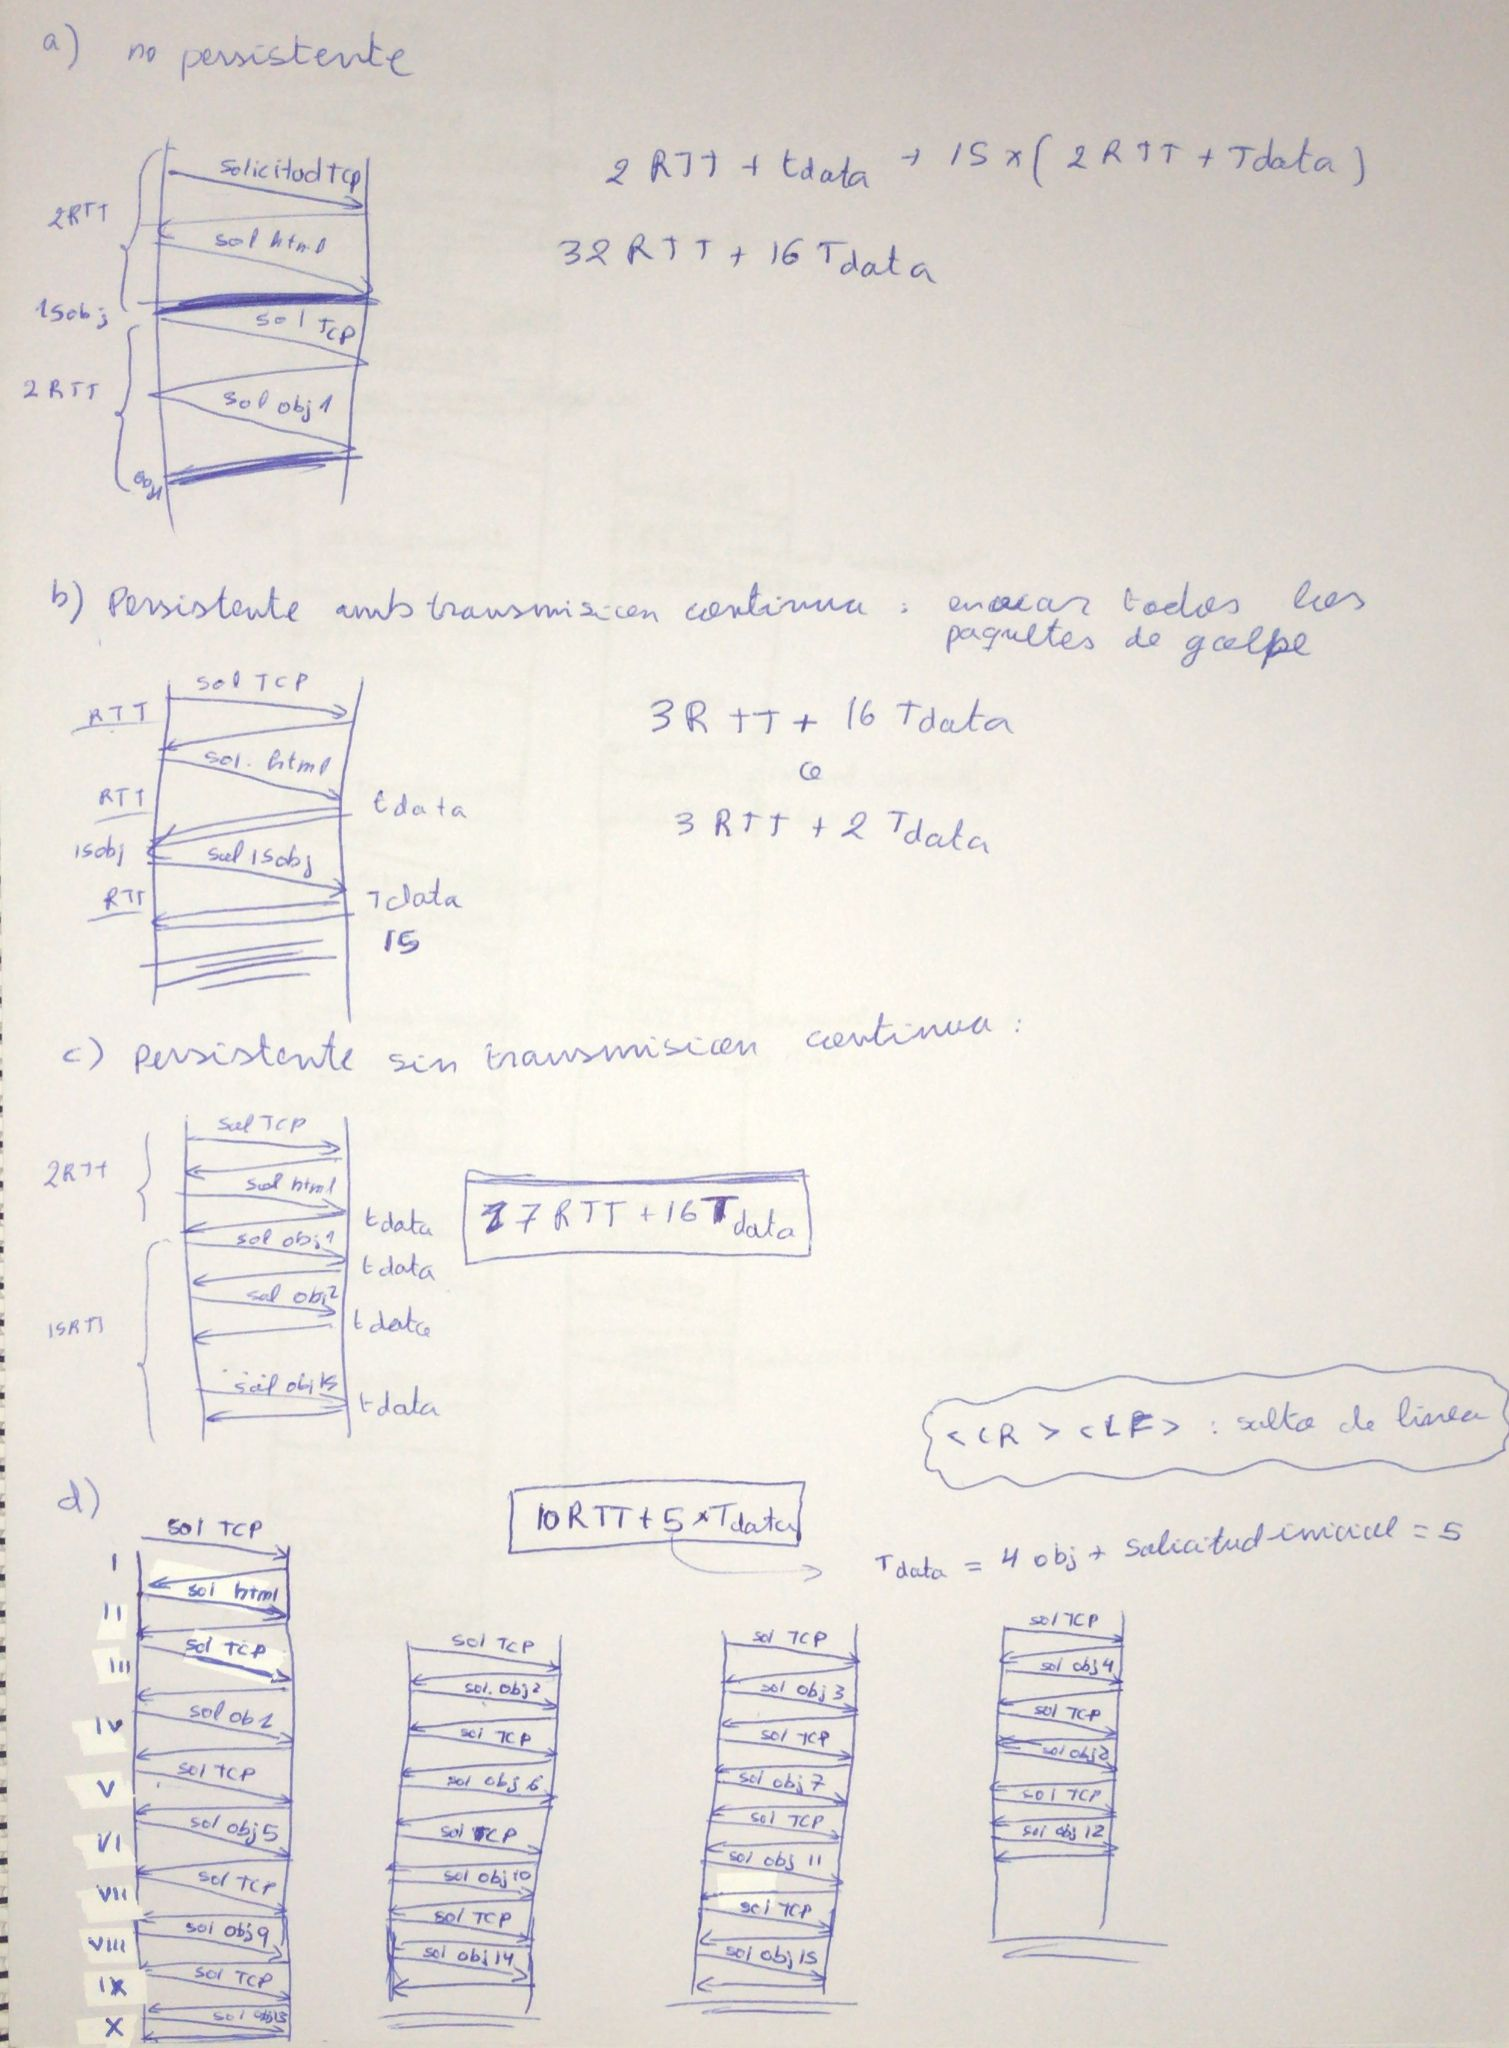 a) no persistente
solicitud TCP
2RTT
sol html
15obj
sol TCP
2RTT
sol obj 1
obj1
2 RTT + tdata + 15 x ( 2 RTT + Tdata )
32 RTT + 16 Tdata
b) Persistente amb transmision continua : enviar todos los
paquetes de golpe
sol TCP
RTT
sol. html
RTT
tdata
15obj
sol 15obj
RTT
Tdata
15
3 RTT + 16 Tdata
o
3 RTT + 2 Tdata
c) persistente sin transmision continua :
sol TCP
2RTT
sol html
tdata
sol obj 1
tdata
sol obj 2
tdata
15RTT
sol obj 15
tdata
17 RTT + 16 Tdata
<CR> <LF> : salto de linea
d)
10 RTT + 5 x Tdata
Tdata = 4 obj + solicitud inicial = 5
sol TCP
I
sol html
II
sol TCP
III
sol ob 1
IV
sol TCP
V
sol obj5
VI
sol TCP
VII
sol obj9
VIII
sol TCP
IX
sol obj13
X
sol TCP
sol. obj2
sol TCP
sol obj 6
sol TCP
sol obj 10
sol TCP
sol obj 14
sol TCP
sol obj 3
sol TCP
sol obj 7
sol TCP
sol obj 11
sol TCP
sol obj 15
sol TCP
sol obj 4
sol TCP
sol obj8
sol TCP
sol obj 12